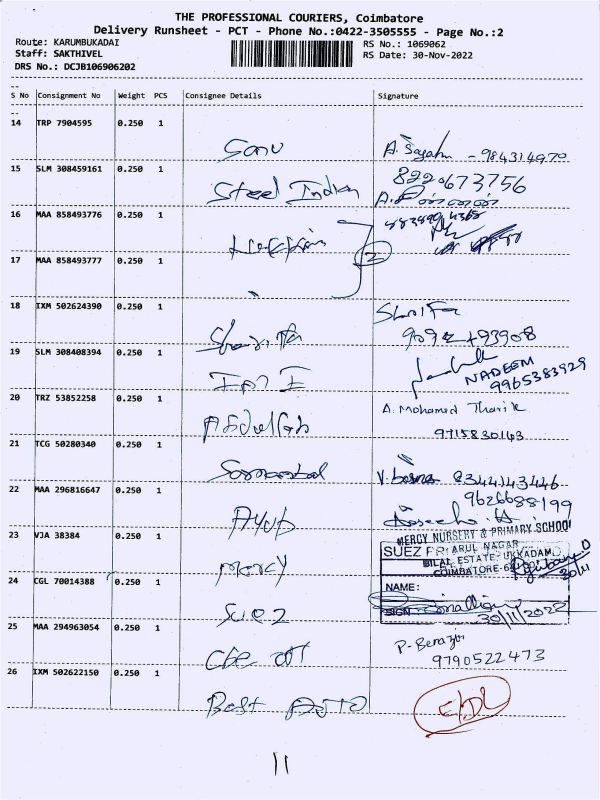 THE PROFESSIONAL COURIERS, Coimbatore
Delivery Runsheet - PCT - Phone No.:0422-3505555 - Page No.:2
Route: KARUMBUKADAI RS No.: 1069062
Staff: SAKTHIVEL RS Date: 30-Nov-2022
DRS No.: DCJB106906202
S No Consignment No Weight PCS Consignee Details Signature
14 TRP 7904595 0.250 1
Sonu
15 SLM 308459161 0.250 1
8220673756
Steel Indian
16 MAA 858493776 0.250 1
2
17 MAA 858493777 0.250 1
18 IXM 502624390 0.250 1
19 SLM 308408394 0.250 1
NADEEM
9965383929
20 TRZ 53852258 0.250 1 A. Mohamed Tharik
9715830143
21 TCG 50280340 0.250 1
8344143446
22 MAA 296816647 0.250 1
9626688199
Ayub
23 VJA 38384 0.250 1
MERCY NURSERY & PRIMARY SCHOOL
SUEZ ARUL NAGAR
BILAL ESTATE, UKKADAM
COIMBATORE-6
Mercy 30/11
24 CGL 70014388 0.250 1 NAME:
SIGN
Suez 30/11/2022
25 MAA 294963054 0.250 1
P. Benazir
9790522473
26 IXM 502622150 0.250 1
Best Auto
11